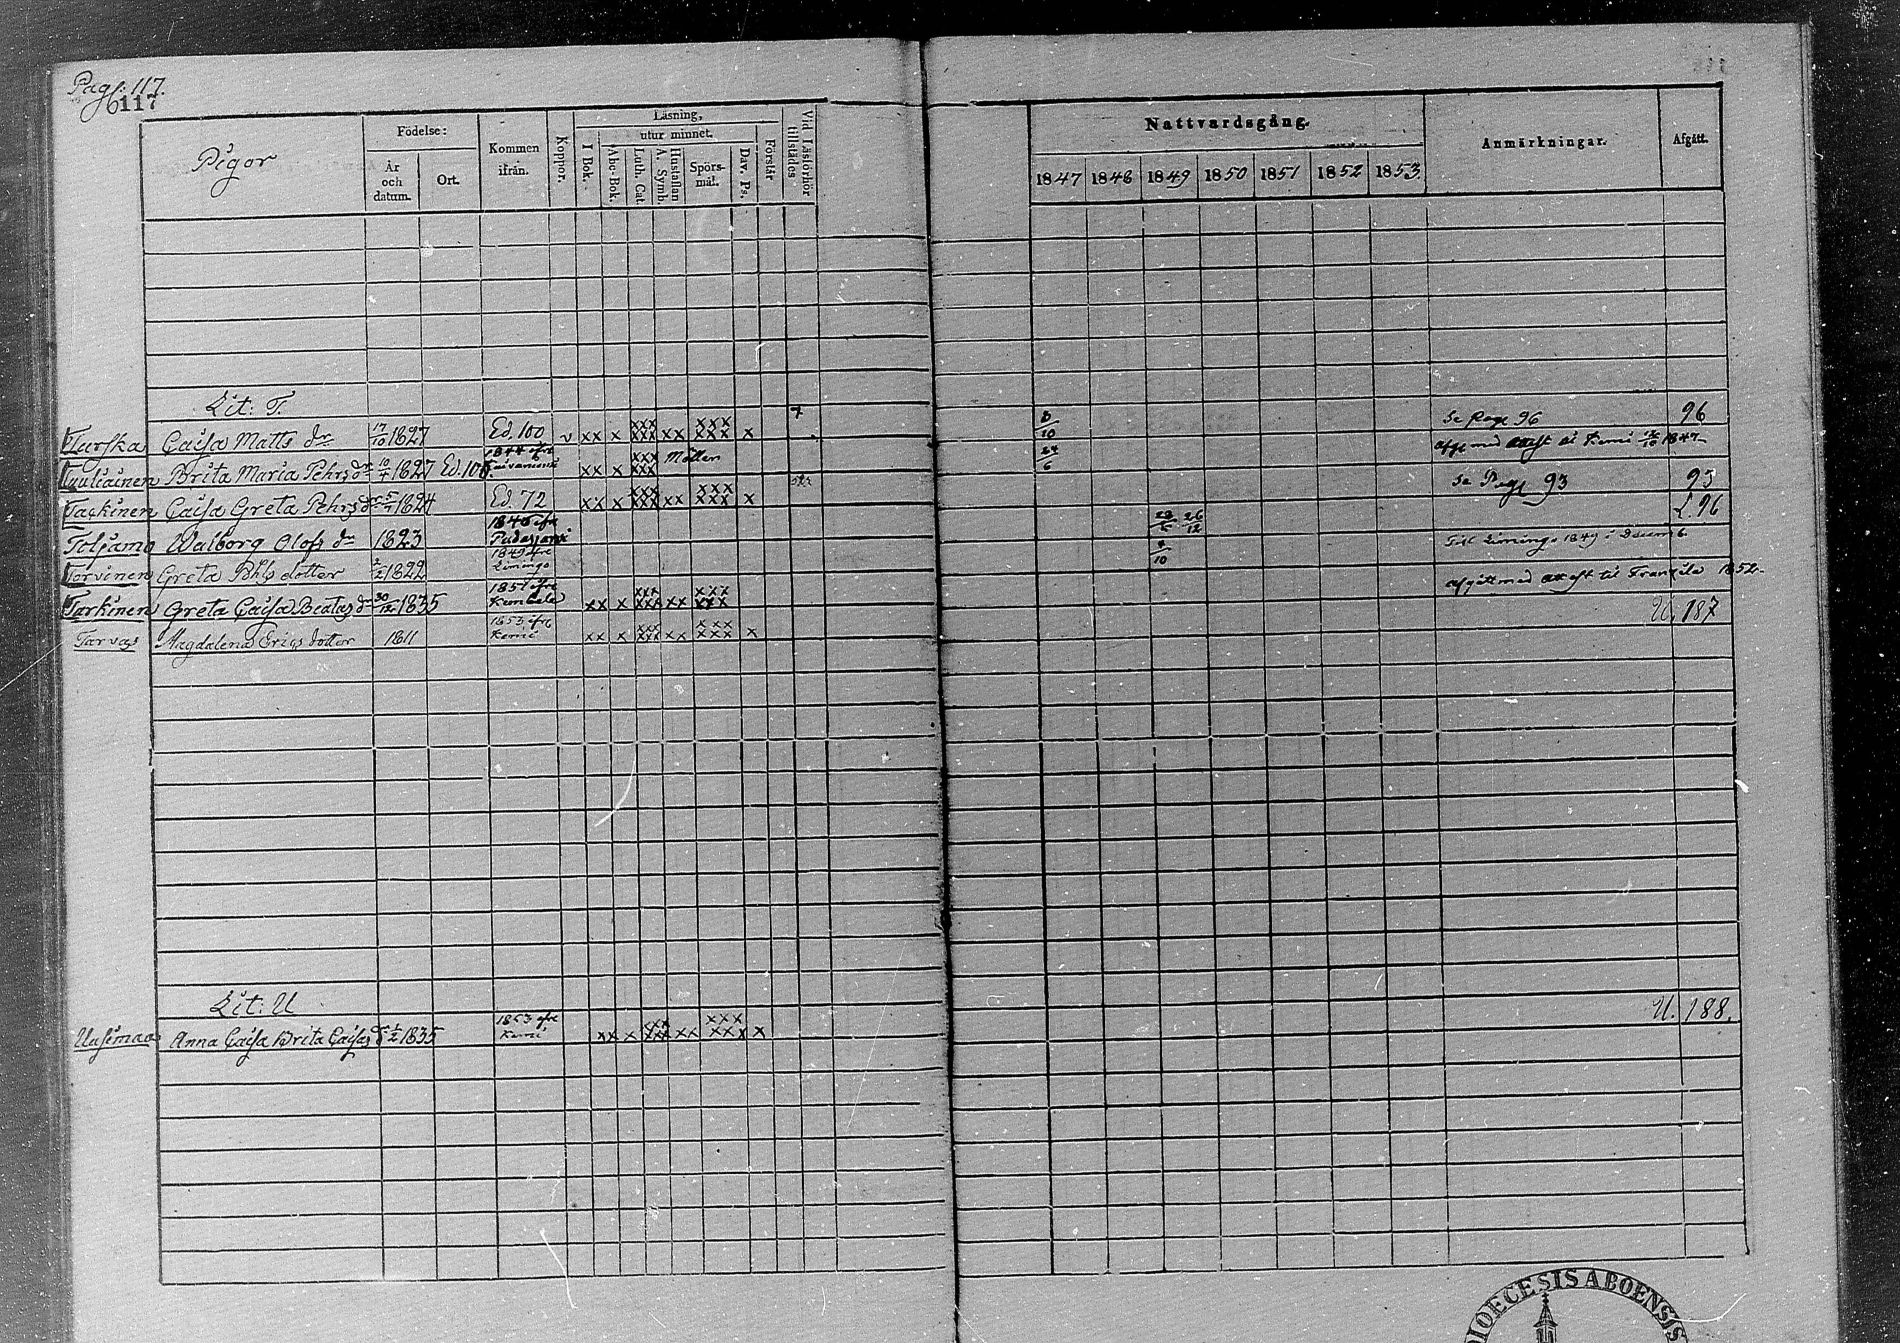 Pag. 117.
117
Pigor
Födelse:
År och datum.
Ort.
Kommen ifrån.
Koppor.
Läsning,
utur minnet.
I Bok.
Abc-Bok.
Luth. Cat.
A. Symb.
Hustaflan
Spörs-mål.
Dav. Ps.
Förstår
Vid Läsförhör tillstädes
Nattvardsgång.
1847 1848 1849 1850 1851 1852 1853
Anmärkningar.
Afgått.
Lit: T.
Turska Caisa Matts dr 17/10 1827 Ed. 100 v xx x xxx xxx xx xxx xxx x 7 8/10 Se Page 96 96
Brita Maria Pehrs dr 1827 Ed. 100 1844 ifr xx x xxx xxx 24/6 attest til Kemi 1847
Tackinen Caisa Greta Pehrs dr 1824 Ed 72 xx x xxx xxx xx xxx xxx x Se Pag 93 93
Toljamo Walborg Olofs dr 1823 Pudasjärvi 26/12 L 96
Torvinen Greta dotter 2/2 1822 1849 ifr Limingo /10 Till Limingo 1849 i Decemb.
Tarkinen Greta Caisa Beatas dr 30/12 1835 1851 ifr xx x xxx xxx xx xxx xxx afgått med attest til Frantzila 1852
Tarvas Magdalena Erics dotter 1811 1853 ifr Kemi xx x xxx xxx xx xxx xxx x U. 187
Lit: U
Uusimaa Anna Caisa Brita Caisas dr /2 1835 1853 ifr Kemi xx x xx xxx xx xxx xxx x U. 188.
DIOECESIS ABOENSIS